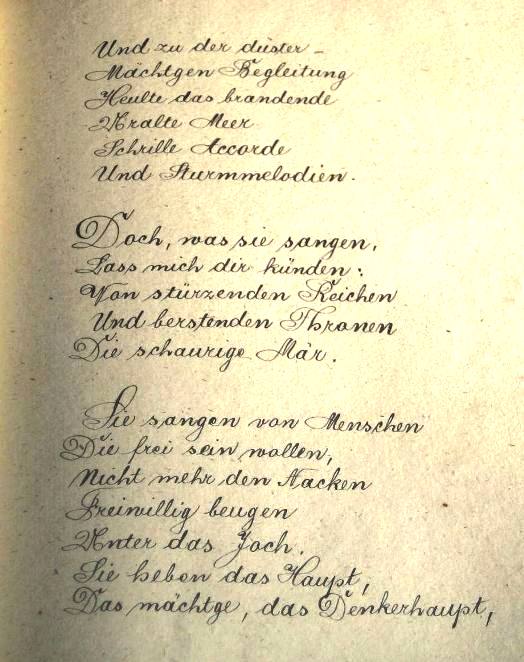 Und zu der düster-
Mächtgen Begleitung
Heulte das brandende
Uralte Meer
Schrille Accorde
Und Sturmmelodien.
Doch, was sie sangen,
Lass mich dir künden:
Von stürzenden Reichen
Und berstenden Thronen
Die schaurige Mär.
Sie sangen von Menschen
Die frei sein wollen,
Nicht mehr den Nacken
Freiwillig beugen
Unter das Joch.
Sie heben das Haupt,
Das mächtge, das Denkerhaupt,